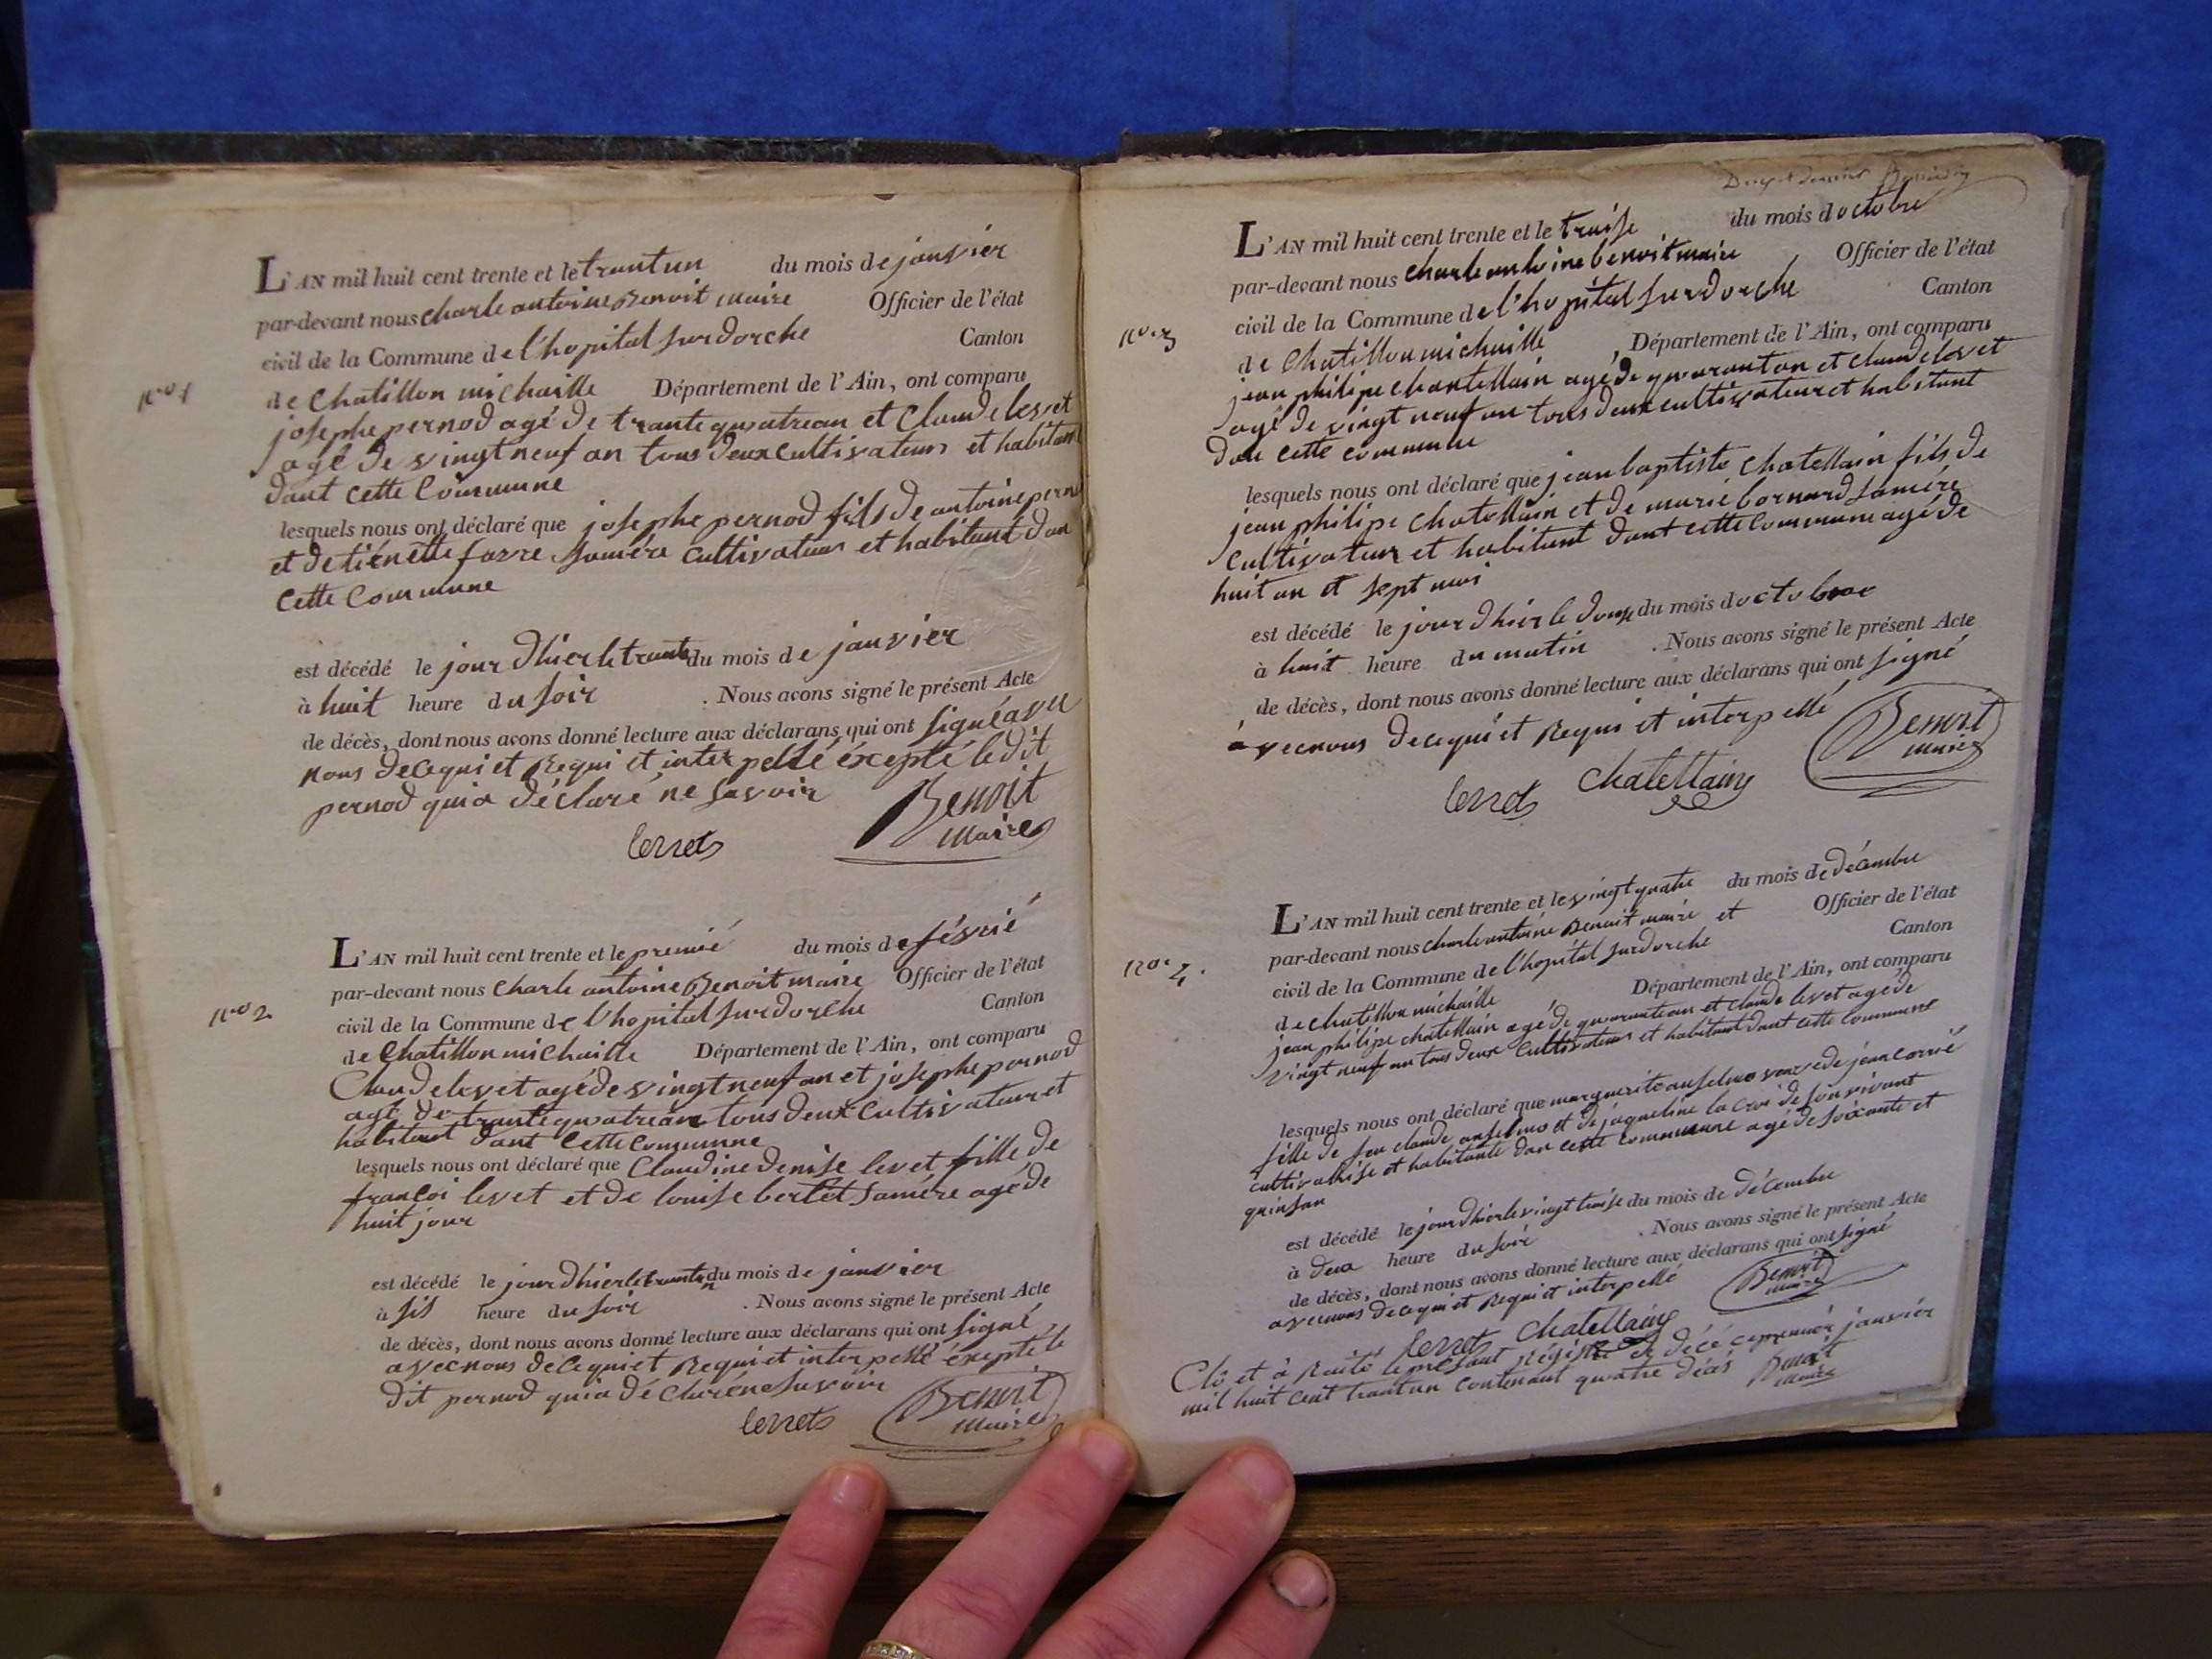 L'AN mil huit cent trente et le trantun du mois de janvier
par-devant nous charle antoine Benoit maire Officier de l'état
civil de la Commune de l'hopital surdorche Canton
de Chatillon michaille Département de l'Ain, ont comparu
nos 1
josephe pernod agé de trante quatrean et Claude levet
agé de vingt neuf an tous deux cultivateurs et habitant
dant cette Commune
lesquels nous ont déclaré que josephe pernod fils de antoine pernod
et de tiénette favre saméra cultivateur et habitant dan
cette Commune
est décédé le jour dhier le trante du mois de janvier
à huit heure du soir . Nous avons signé le présent Acte
de décès, dont nous avons donné lecture aux déclarans qui ont signé avec
nous decequi et Requi et interpellé éxcepté ledit
pernod qui a déclaré ne savoir
Benoit
maire
Levet
L'AN mil huit cent trente et le premié du mois de févrié
par-devant nous charle antoine Benoit maire Officier de l'état
nos 2
civil de la Commune de l'hopital surdorche Canton
de Chatillon michaille Département de l'Ain, ont comparu
Claude levet agé de vingt neuf an et josephe pernod
agé de trante quatrean tous deux cultivateur et
habitant dant cette Commune
lesquels nous ont déclaré que Claudine denise levet fille de
françoi levet et de louise bertet samére agé de
huit jour
est décédé le jour dhier le trantun du mois de janvier
à sis heure du soir . Nous avons signé le présent Acte
de décès, dont nous avons donné lecture aux déclarans qui ont signé
avec nous decequi et Requi et interpellé éxcepté le
dit pernod qui a déclaré ne savoir
Benoit
maire
Levet
L'AN mil huit cent trente et le traise du mois doctobre
par-devant nous charle antoine benoit maire Officier de l'état
civil de la Commune de l'hopital surdorche Canton
no. 3
de Chatillon michaille , Département de l'Ain, ont comparu
jean philipe chantellain agé de quarantan et claude levet
agé de vingt neuf an tous deux cultivateur et habitant
dan cette commune
lesquels nous ont déclaré que jean baptiste chatellain fils de
jean philipe chatellain et de marie bornard samére
cultivateur et habitant dant cette commune agé de
huit an et sept moi
est décédé le jour dhier le douze du mois doctobre
à huit heure du matin . Nous avons signé le présent Acte
de décès, dont nous avons donné lecture aux déclarans qui ont signé
avec nous decequi et Requi et interpellé
Benoit
maire
Levet Chatellain
L'AN mil huit cent trente et le vingt quatre du mois de décembre
par-devant nous charle antoine Benoit maire et Officier de l'état
no. 4.
civil de la Commune de l'hopital surdorche Canton
de chatillon michaille Département de l'Ain, ont comparu
jean philipe chatellain agé de quarantean et claude levet agé de
vingt neuf an tous deux cultivateurs et habitant dant cette commune
lesquels nous ont déclaré que marguerite anselmo veuve de jean carrié
fille de feu claude anselmo et de jaqueline la croi de son vivant
cultivatrise et habitante dan cette commune agé de soixante et
quinsan
est décédé le jour dhier le vingt traise du mois de décembre
à deux heure du soir . Nous avons signé le présent Acte
de décès, dont nous avons donné lecture aux déclarans qui ont signé
avec nous decequi et Requi et interpellé
Benoit
maire
Levet Chatellain
Clô et à Raité le présant régistre de décé ce premiér janviér
mil huit cent trantun contenant quatre décés
Benoit
maire